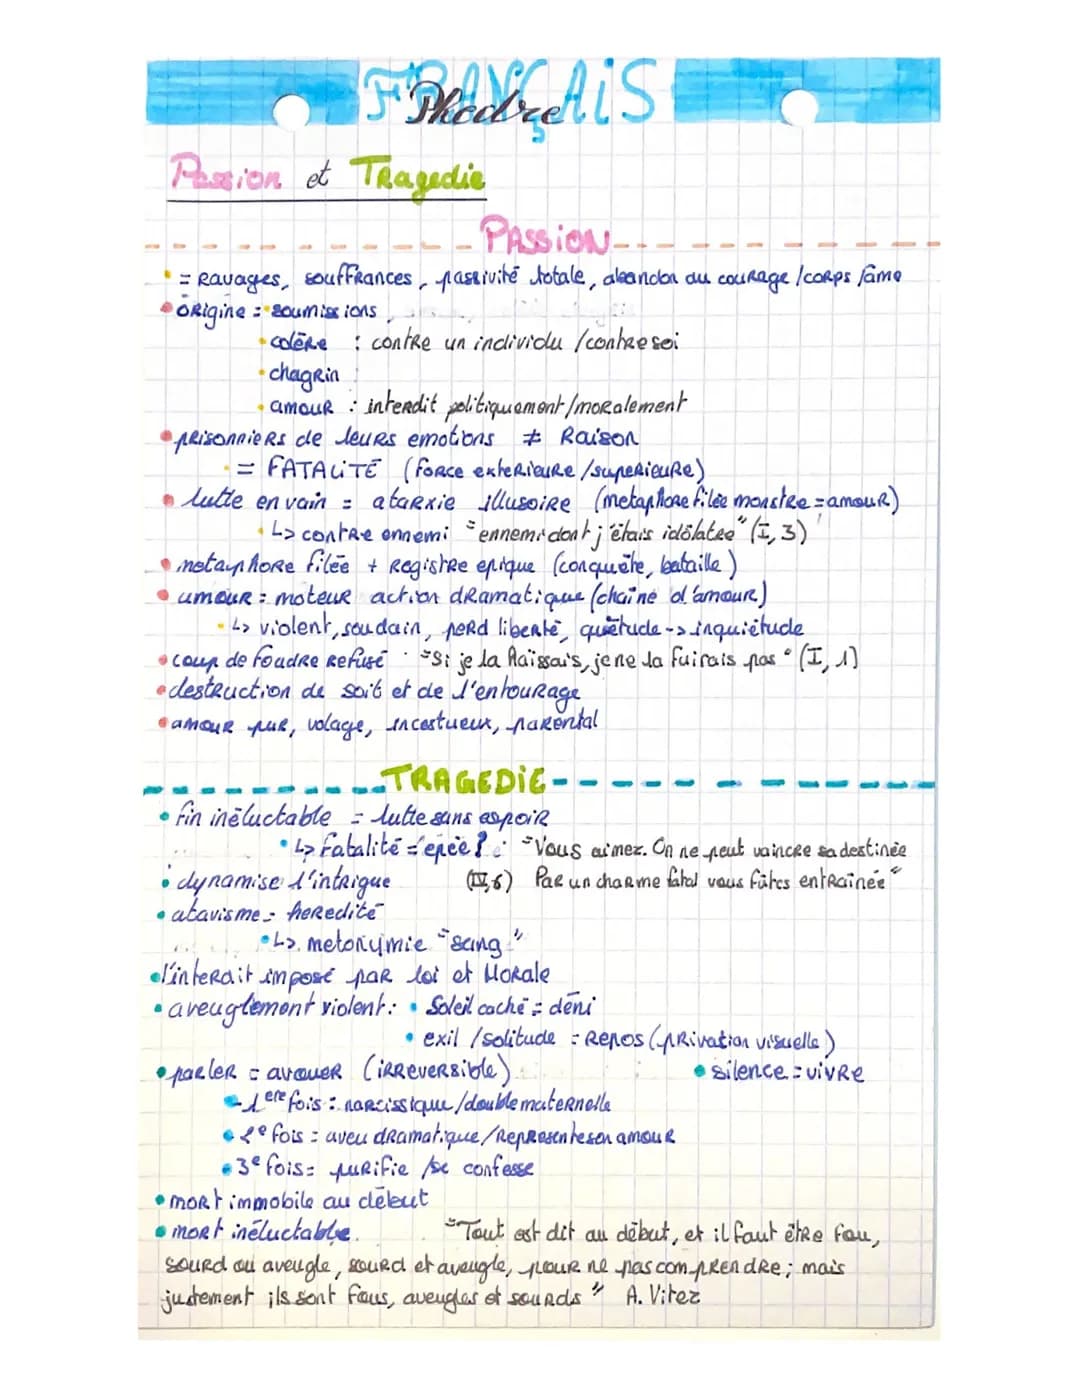 FRANÇAIS
Phèdre
Passion et Tragedie
PASSION
= Ravages, souffrances, passivité totale, abandon du courage/corps/âme
• origine = • soumissions
• colère : contre un individu /contre soi
• chagrin
• amour : interdit politiquement/moralement
• prisonniers de leurs emotions ≠ Raison
• = FATALITÉ (force exterieure/superieure)
• lutte en vain = atarxie illusoire (metaphore filée monstre = amour)
• ↳ contre ennemi "ennemi dont j'étais idôlatre" (I, 3)
• metaphore filée + Registre epique (conquête, bataille)
• amour = moteur action dramatique (chaîne d'amour)
• ↳ violent, soudain, perd liberté, quiétude -> inquiétude
• coup de foudre refusé : "Si je la Haïssais, je ne la fuirais pas" (I, 1)
• destruction de soit et de l'entourage
• amour pur, volage, incestueux, parental
TRAGEDIE
• fin inéluctable = lutte sans espoir
• ↳ Fatalité = epée ? : "Vous aimez. On ne peut vaincre sa destinée
• dynamise l'intrigue (IV, 6) Par un charme fatal vous fûtes entraînée"
• atavisme = heredité
• ↳ metonymie "sang"
• l'interdit imposé par loi et Morale
• aveuglement violent : • Soleil caché = déni
• exil /solitude = Repos (privation visuelle)
• parler = avouer (irreversible) • silence = vivre
• 1ere fois : narcissique/double maternelle
• 2e fois = aveu dramatique/Represente son amour
• 3e fois = purifie /se confesse
• mort immobile au début
• mort inéluctable. "Tout est dit au début, et il faut être fou,
sourd ou aveugle, sourd et aveugle, pour ne pas comprendre ; mais
justement ils sont fous, aveugles et sourds" A. Vitez